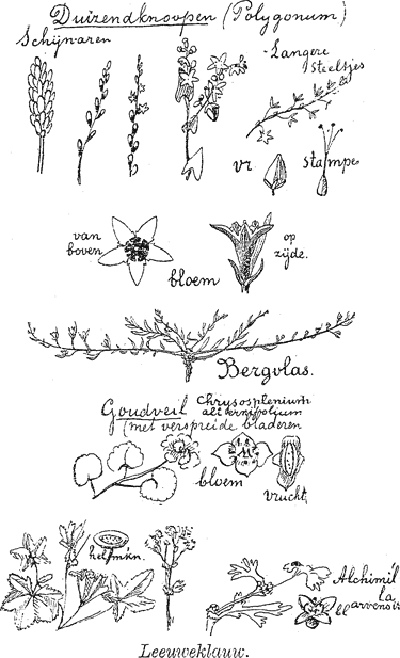 Duizendknoopen (Polygonum)
Schijnaren
Langere
steeltjes
vr
stamper
van
boven
bloem
op
zijde.
Bergvlas.
Goudveil Chrysosplenium
alternifolium
(met verspreide bladeren
bloem
vrucht
helmkn.
Alchimil
la
arvensis
Leeuweklauw.